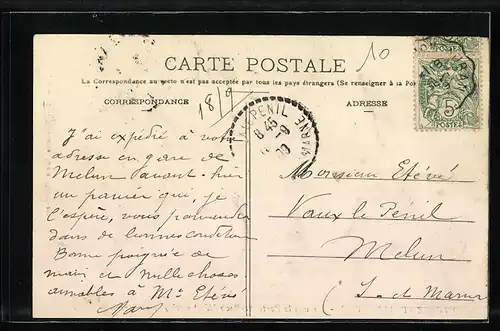 10
CARTE POSTALE
La Correspondance au recto n'est pas acceptée par tous les pays étrangers (Se renseigner à la Pos
CORRESPONDANCE
ADRESSE
18/9
PENIL
8 45
9
09
MARNE
5c
POSTES
J'ai expédié à votre
adresse en gare de
Melun avant-hier
un panier qui, je
l'espère, vous parviendra
dans de bonnes conditions
Bonne poignée de
main et mille choses
aimables à Me Etévé
Monsieur Etévé
Vaux le Pénil
Melun
(S. et Marne